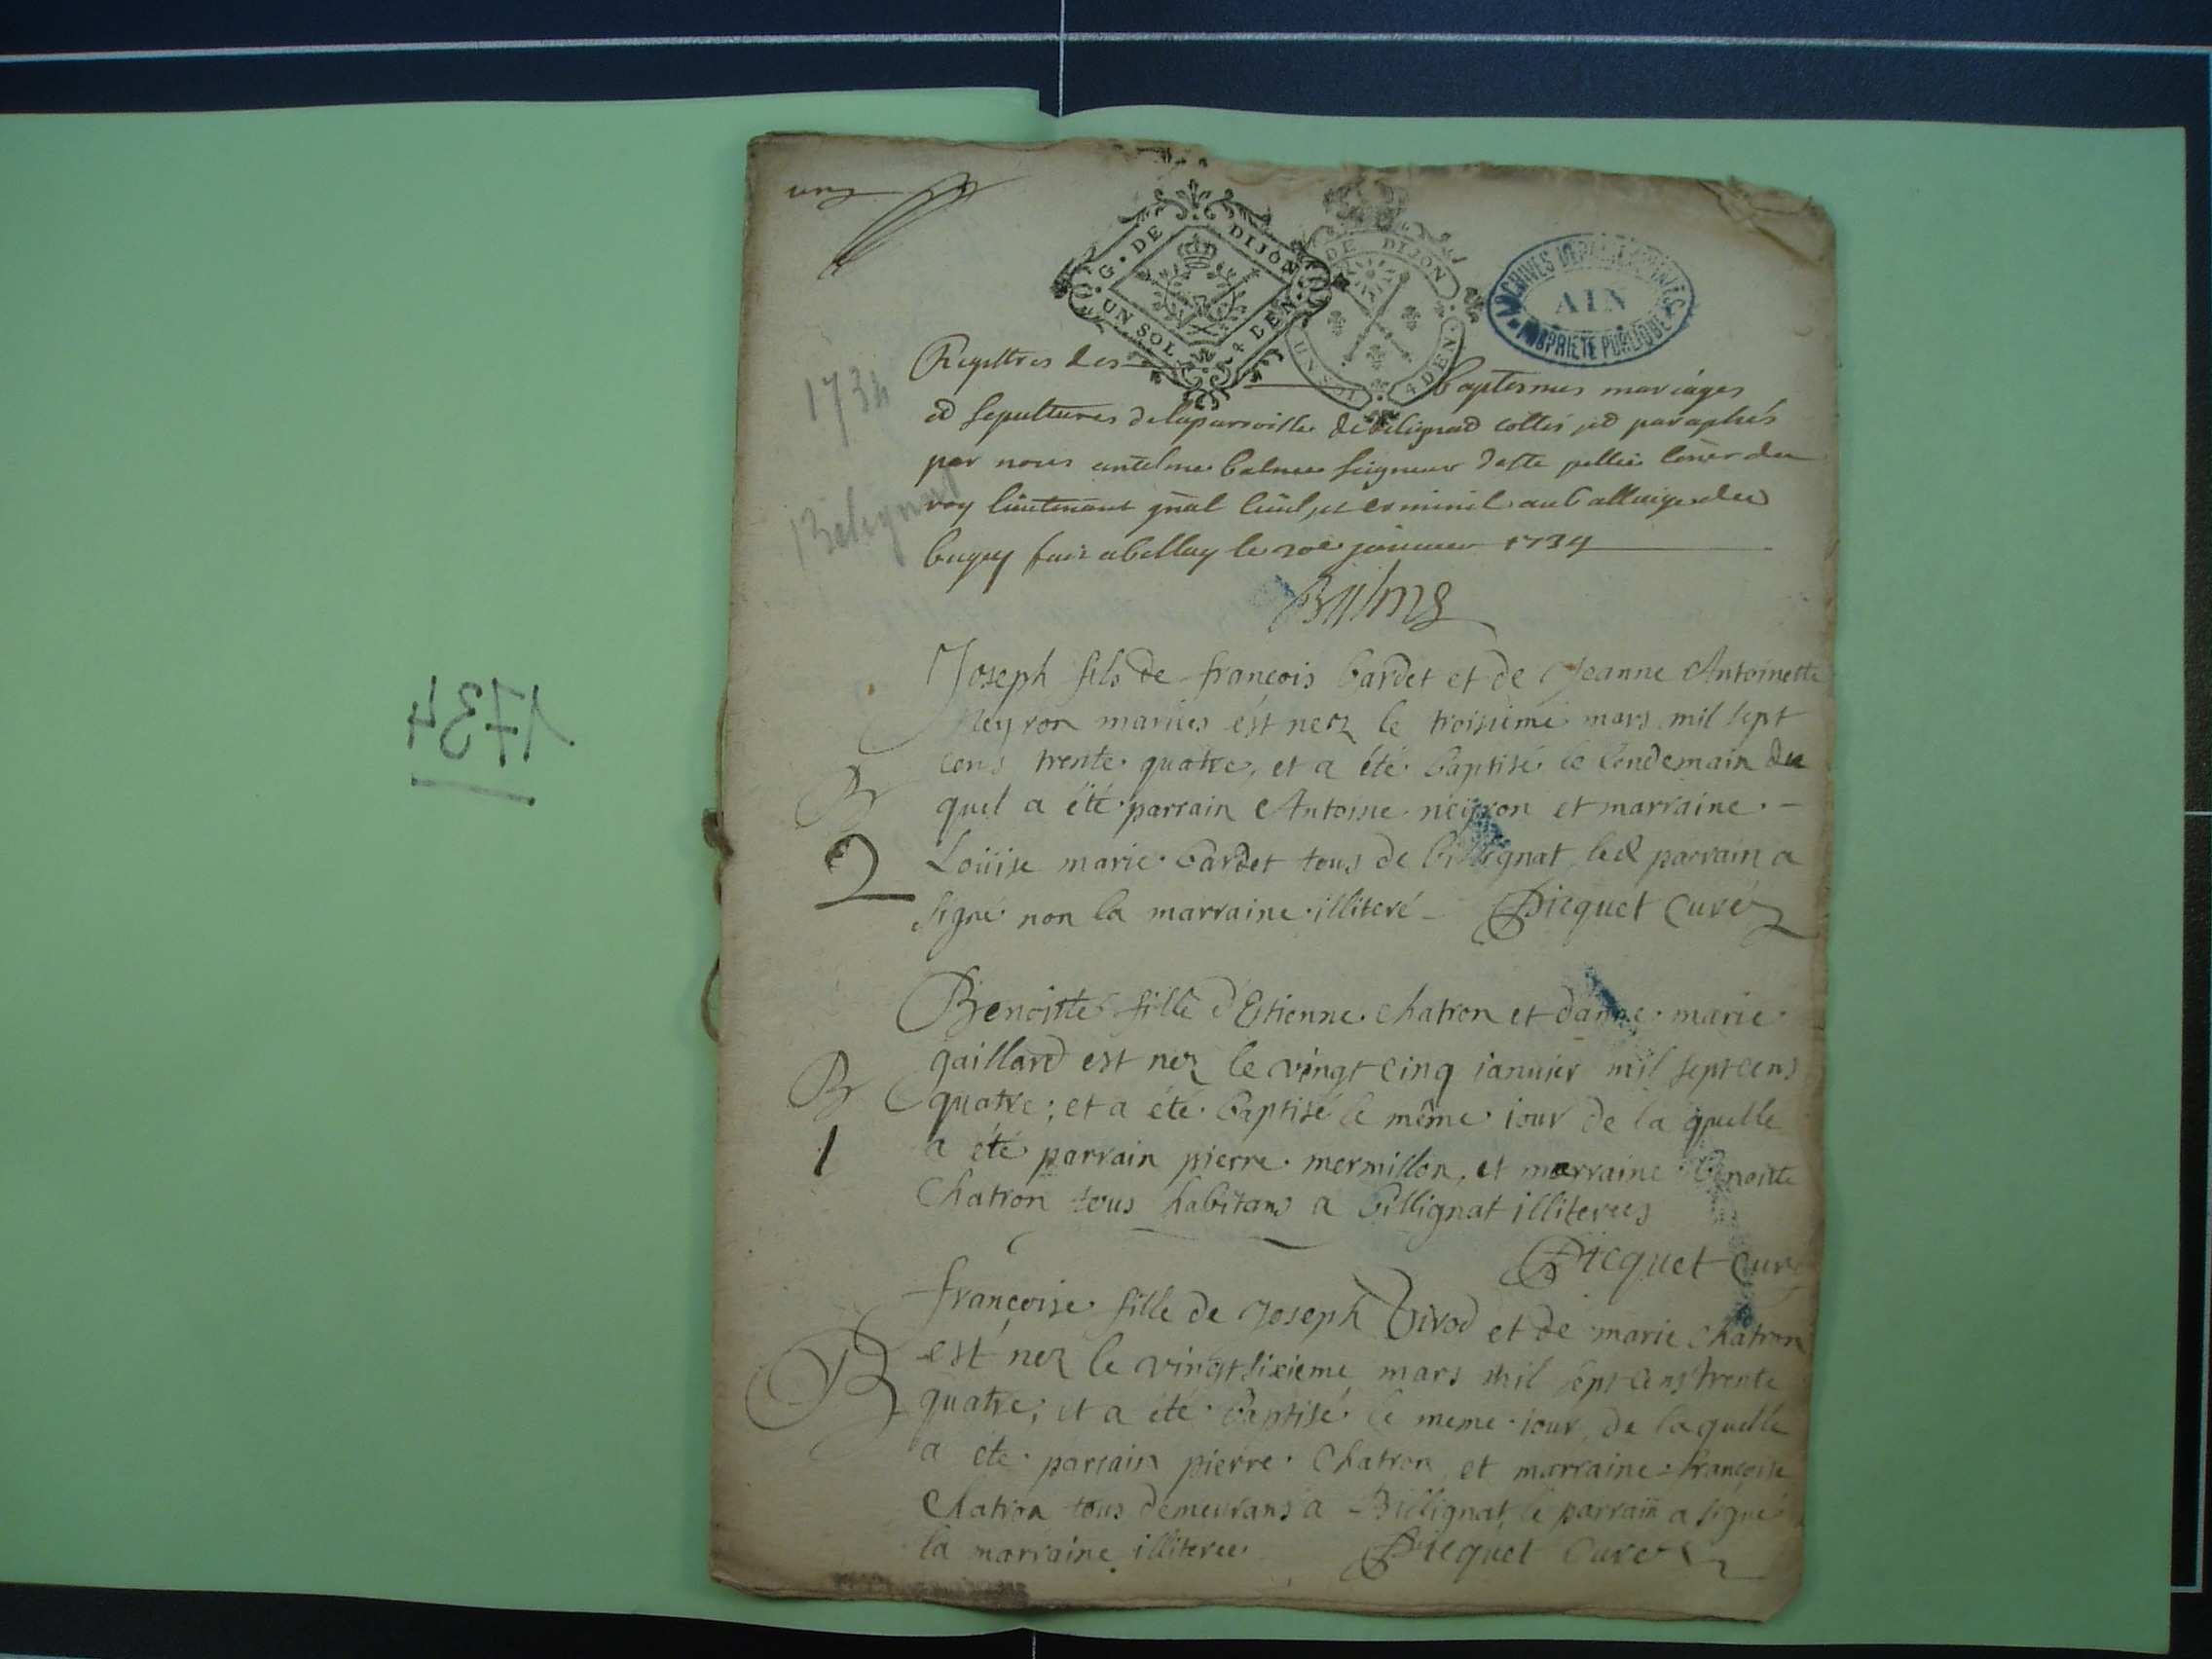 G. DE DIJON
UN SOL 4 DEN
DE DIJON
UN SOL 4 DEN
ARCHIVES DEPARTEMENTALES
AIN
PROPRIETE PUBLIQUE
1734
Belignat
1734
Regittres des baptesmes mariages
et sepultures de la parroisse de belignat cottés et paraphés
par nous antelme balme seigneur
roy lieutenant gnal civil et criminel au balliage du
bugey fait a bellay le janvier 1734
Balme
Joseph fils de françois bardet et de Jeanne Antoinette
Neyron mariés est nez le troisieme mars mil sept
cens trente quatre, et a été baptisé le lendemain du
quel a été parrain Antoine neyron et marraine
Loüise marie bardet tous de billignat led parrain a
signé non la marraine illiteré Picquet Curé
B
2
Benoitte fille d'Estienne chatron et d'anne marie
gaillard est nez le vingt cinq ianvier mil sept cens
quatre; et a été baptisé le même iour de la quelle
a été parrain pierre mermillon, et marraine benoitte
Chatron tous habitans a billignat illiterees
B
1
Picquet Curé
françoise fille de Joseph et de marie chatron
est nez le vingt sixieme mars mil sept cens trente
quatre; et a été baptisé le meme iour, de laquelle
a éte parrain pierre Chatron et marraine françoise
Chatron tous demeurans a Billignat, le parrain a signé
la marraine illiteree Picquet Curé
B